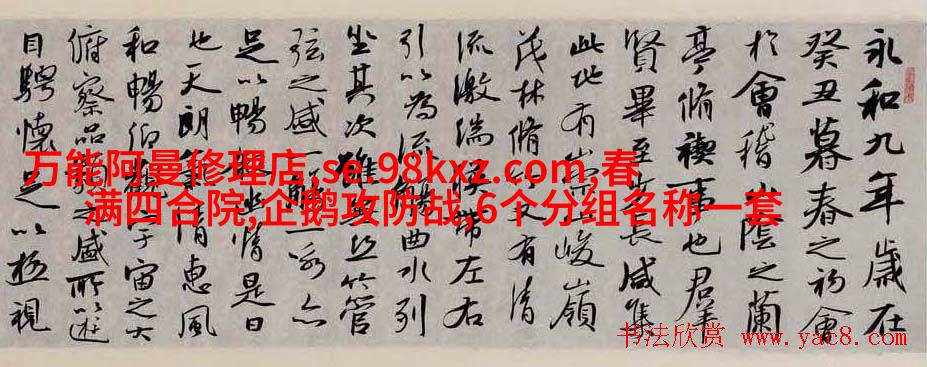 永和九年歲在
癸丑暮春之初會
於會稽山陰之蘭
亭脩禊事也群
賢畢至少長咸集
此地有崇山峻嶺
茂林脩竹又有清
流激湍暎帶左右
引以為流觴曲水列
坐其次雖無絲竹管
弦之盛一觴一詠亦
足以暢敘幽情是日
也天朗氣清惠風
和暢仰觀宇宙之大
俯察品類之盛所以遊
目騁懷足以極視
万能阿曼修理店,se.98kxz.com,春
满四合院,企鹅攻防战,6个分组名称一套
书法欣赏 www.yac8.com